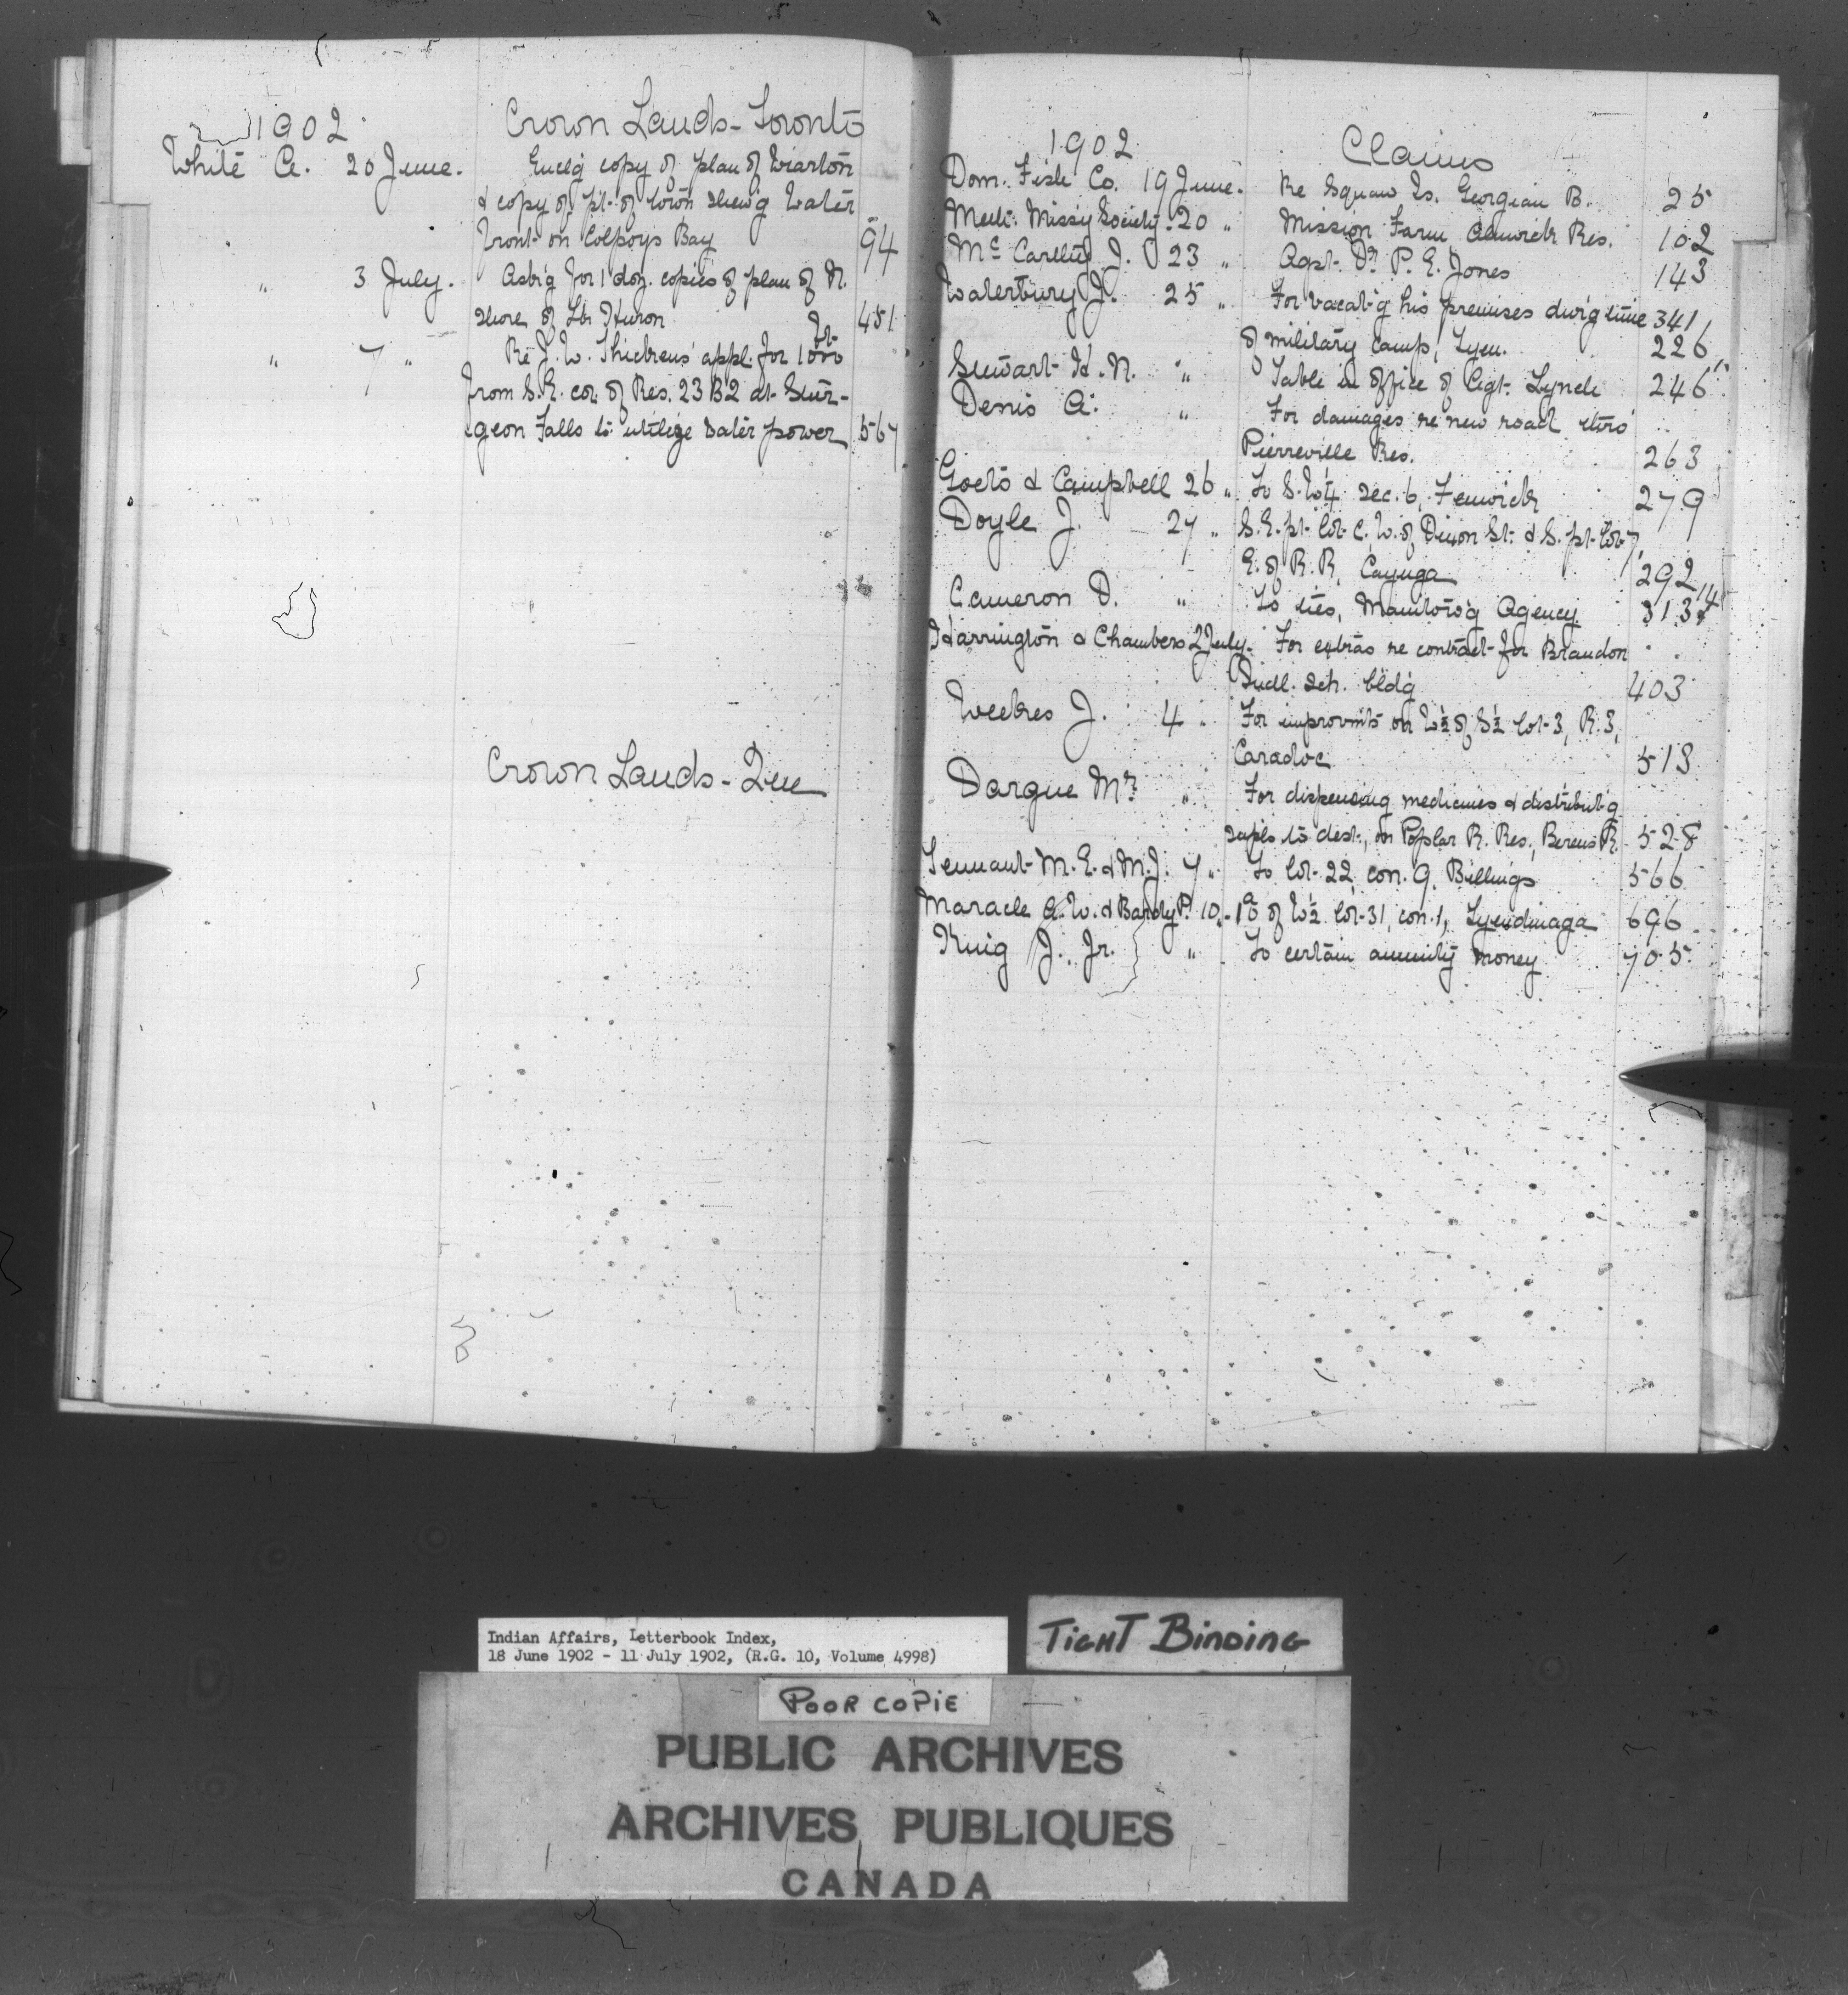 1902. Crown Lands - Toronto
White A. 20 June. Enclg copy of plan of Wiarton
& copy of pt. of town shewg water
front on Colpoys Bay 94
" 3 July. Askg for 1 doz. copies of plan of N.
shore of Lk Huron 451
" 7 " Re J. W. Thickens' appl. for 1000 ft.
from S.E. cor. of Res. 23 B2 at Stur-
geon Falls to utilize water power 567
Crown Lands - Que
1902. Claims
Dom. Fish Co. 19 June. Re Squaw Is. Georgian B. 25
Meth. Missy Society. 20 " Mission Farm Alnwick Res. 102
McCarthy J. 23 " Agst. Dr. P. E. Jones 143
Waterbury J. 25 " For vacat'g his premises durg time 341
of military camp, Tyen. 226
Stewart H. N. " Table in office of Agt. Lynch 246
Denis A. " For damages re new road thro'
Pierreville Res. 263
Goets & Campbell 26 " To S.W¼ sec. 6, Fenwick 279
Doyle J. 27 " S.E. pt. lot C. W. of Dixon St. & S. pt. lot 7,
E. of R. R, Cayuga 292
Cameron D. " To ties, Manitow'g Agency. 313 14
Harrington & Chambers 2 July. For extras re contract for Brandon
Indl. Sch. bldg 403
Weekes J. 4 " For improvm'ts on W½ of S½ lot 3, R. 3,
Caradoc 513
Dargue Mr. " For dispensing medicines & distribut'g
supls to dest., on Poplar R. Res., Berens R. 528
Tennant M. E. & M. J. 7 " To lot 22, con. 9. Billings 566
Maracle A. W. & Bardy P. 10 " 1a of W½ lot 31, con. 1, Tyendinaga 696
King J., Jr. " To certain annuity money 705
Indian Affairs, Letterbook Index,
18 June 1902 - 11 July 1902, (R.G. 10, Volume 4998)
TIGHT BINDING
POOR COPIE
PUBLIC ARCHIVES
ARCHIVES PUBLIQUES
CANADA